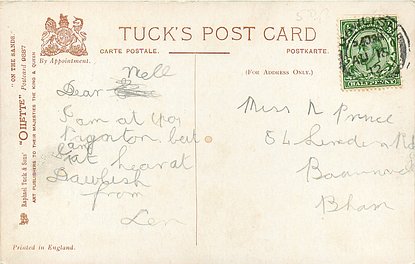 TUCK'S POST CARD
CARTE POSTALE.
POSTKARTE.
By Appointment.
(FOR ADDRESS ONLY.)
"ON THE SANDS."
"OILETTE" Postcard 9887
Raphael Tuck & Sons'
ART PUBLISHERS TO THEIR MAJESTIES THE KING & QUEEN
Nell
Dear
I am at
but
at
Dawlish
from
Len
Miss N Prince
84
Bham
HALFPENNY
Printed in England.